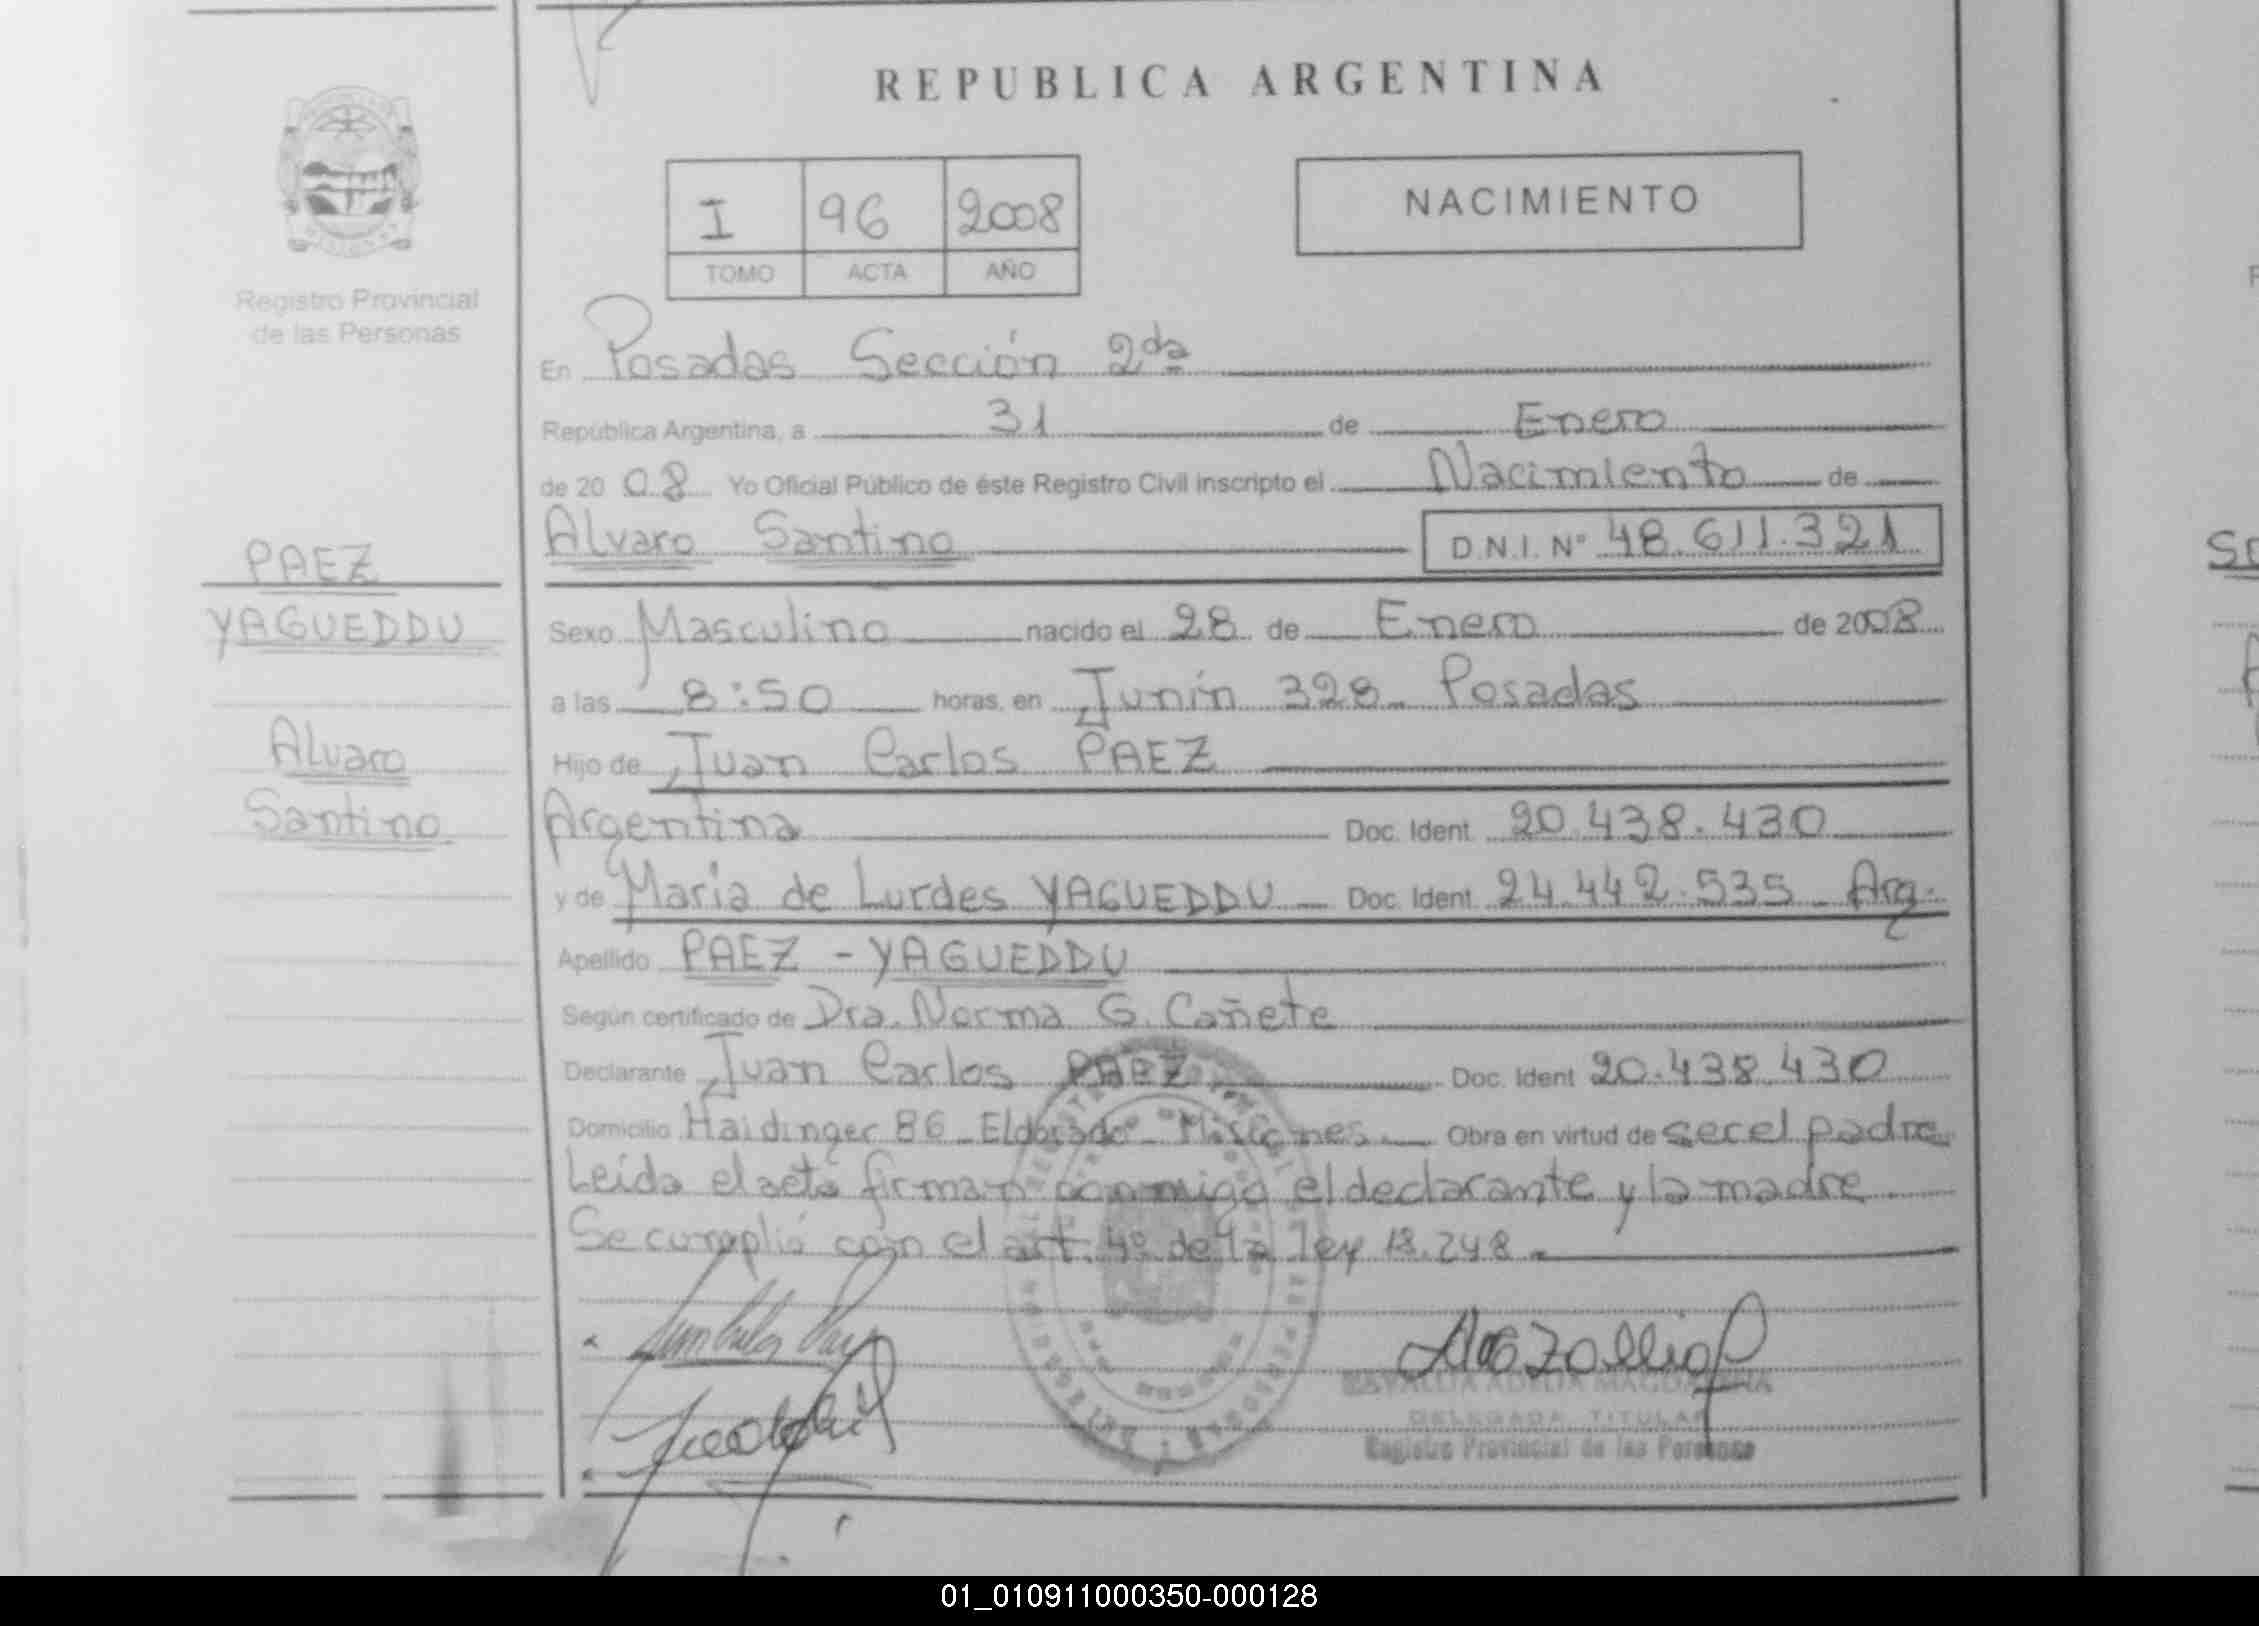 REPUBLICA ARGENTINA
NACIMIENTO
I 96 2008
TOMO ACTA AÑO
Registro Provincial
de las Personas
En Posadas Sección 2da
República Argentina, a 31 de Enero
de 2008 Yo Oficial Público de éste Registro Civil inscripto el Nacimiento de
Alvaro Santino D.N.I. Nº 48.611.321
PAEZ
YAGUEDDU
Alvaro
Santino
Sexo Masculino nacido el 28 de Enero de 2008
a las 8:50 horas, en Junín 328 Posadas
Hijo de Juan Carlos PAEZ
Argentina Doc. Ident. 20.438.430
y de Maria de Lurdes YAGUEDDU Doc. Ident. 24.442.535 - Arg.
Apellido PAEZ - YAGUEDDU
Según certificado de Dra. Norma G. Cañete
Declarante Juan Carlos PAEZ Doc. Ident 20.438.430
Domicilio Haidinger 86 - Eldorado - Misiones Obra en virtud de ser el padre
Leida el acta firman conmigo el declarante y la madre
Se cumplió con el art. 4º de la ley 18.248.
DELEGADA TITULAR
Registro Provincial de las Personas
01_010911000350-000128